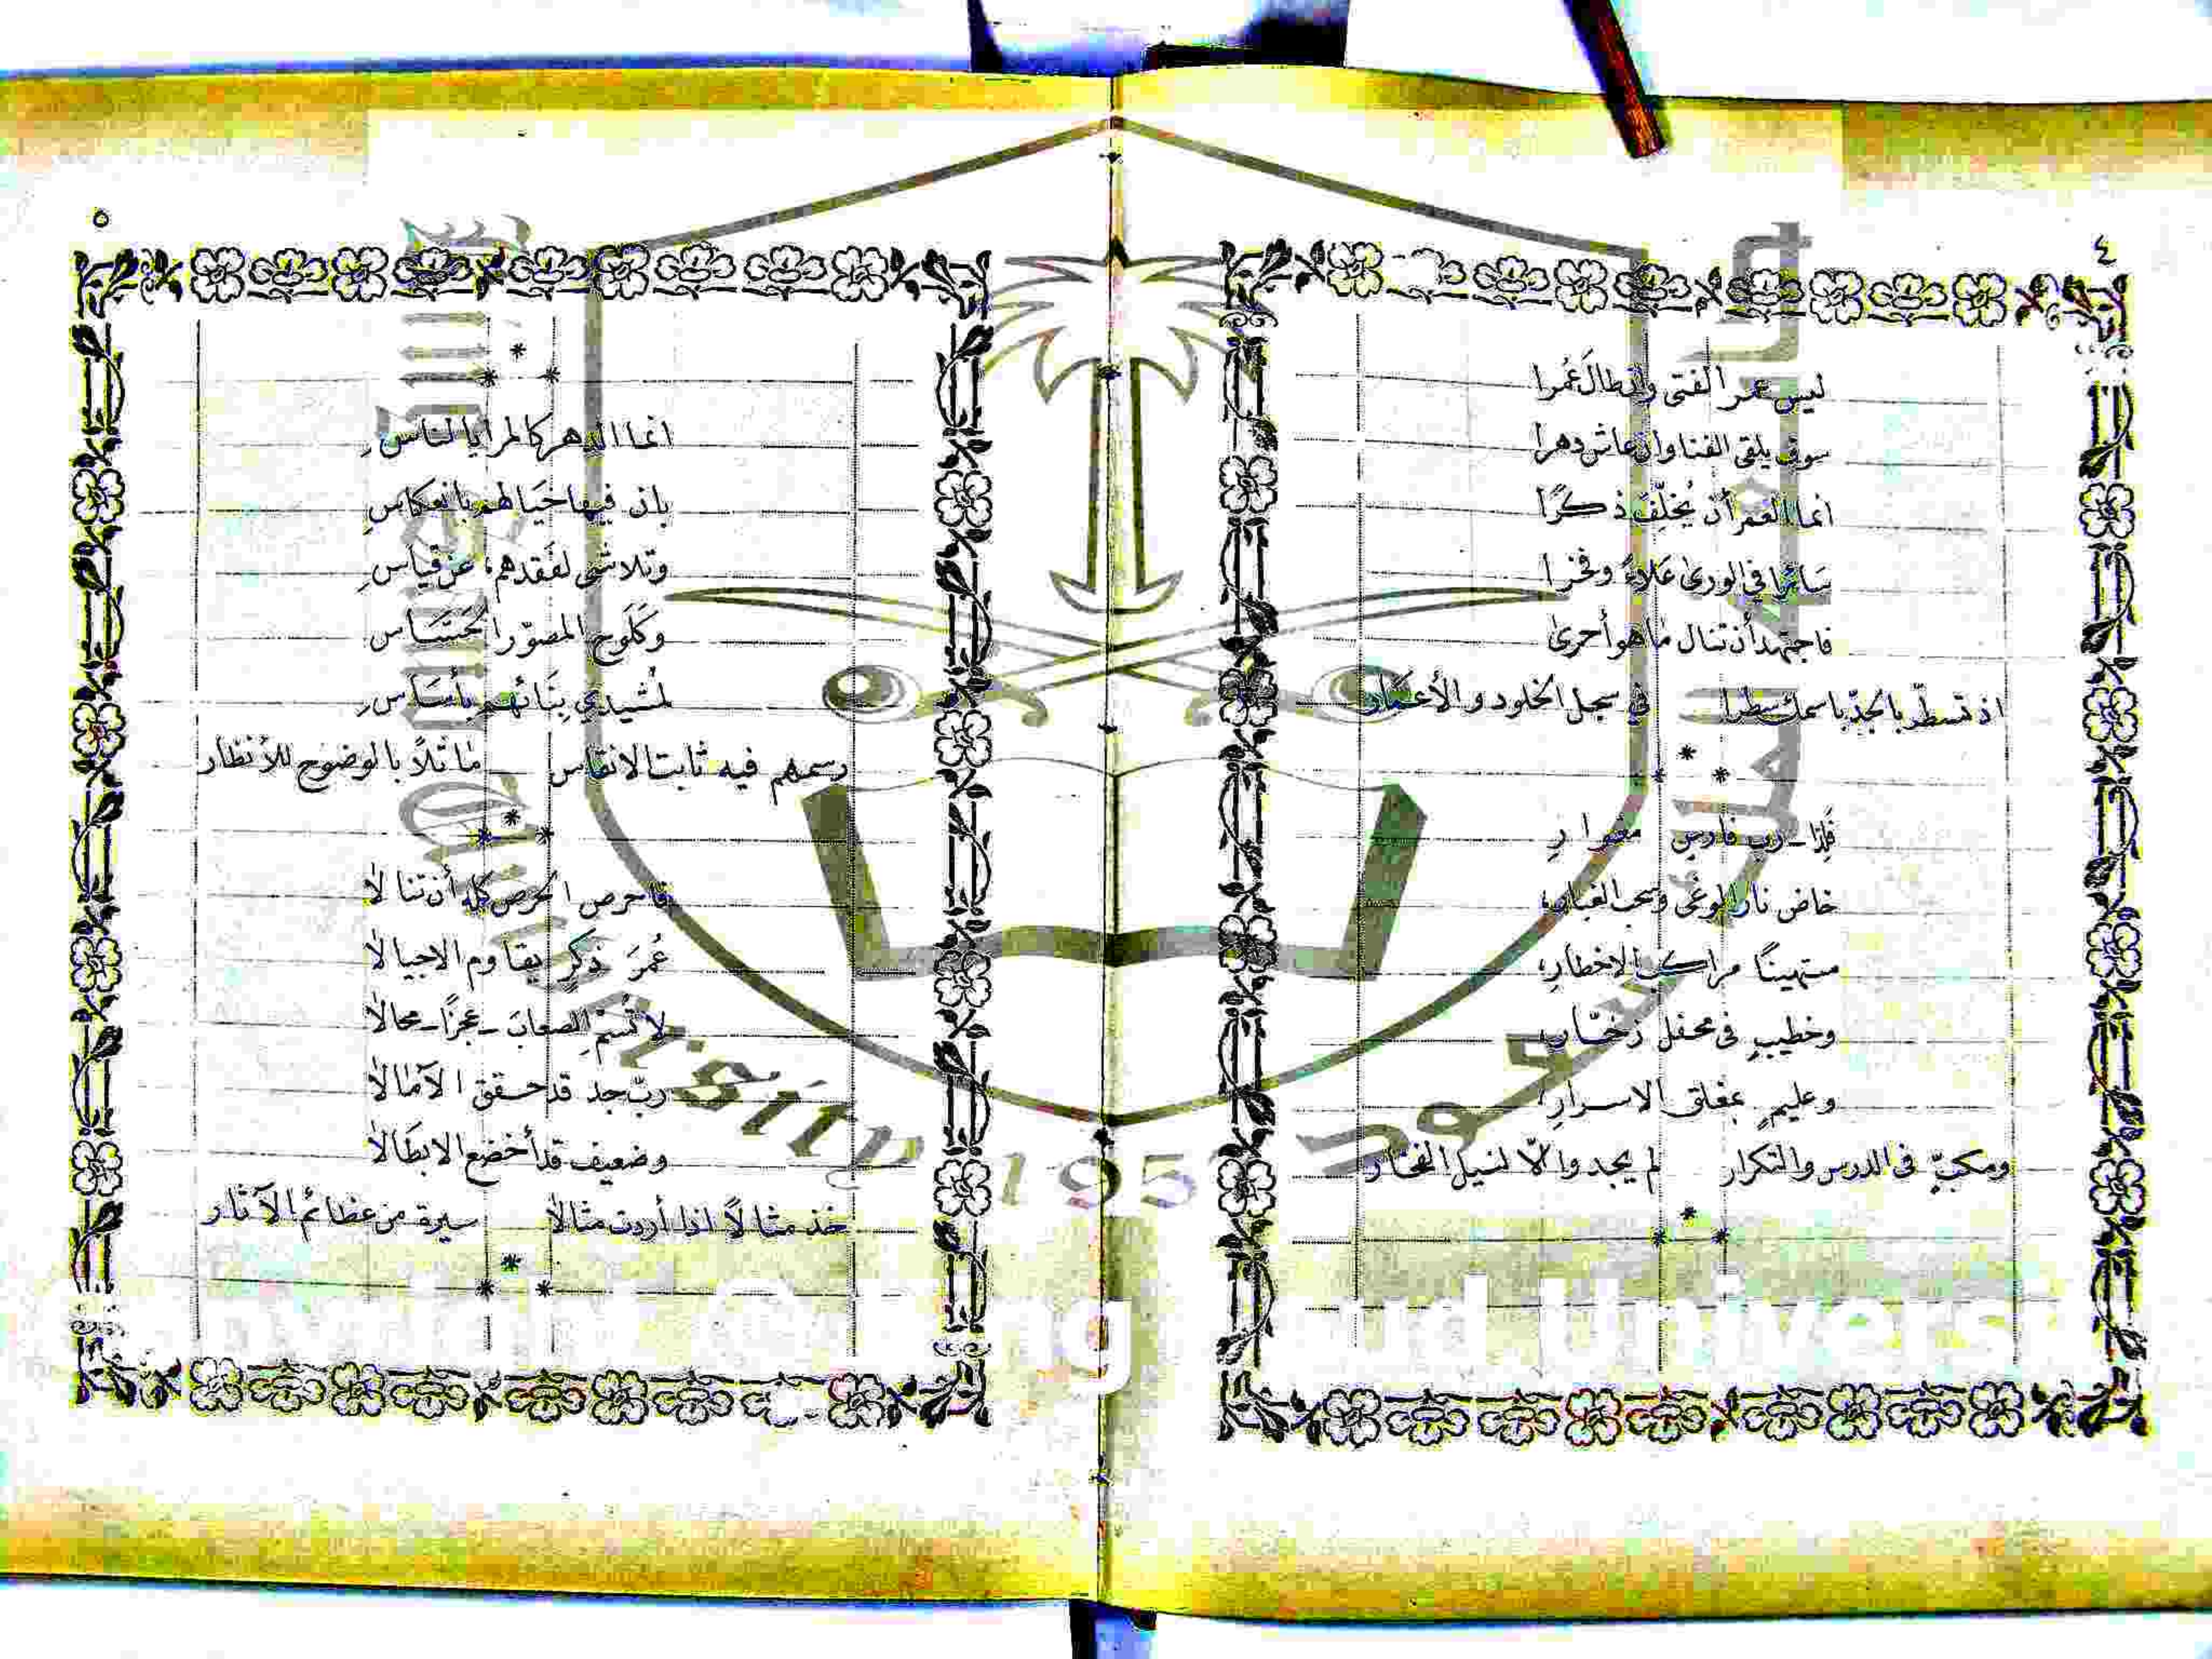 ٤
ليس عمر الفتى وان طالَ عُمرا
سوف يلقى الفنا وان عاش دهرا
انما العمر أن يُخلّفَ ذكرًا
سَائرا في الورىٰ عَلاءً وفخرا
فاجتهد أن تنال ما هو أحرىٰ
اذ تسطّر بالجدّ باسمك سطرا في سجل الخلود والأعمار
*
* *
فَلِذا ـ رب فارس مغوارِ
خاض نار الوغى وسحب الغبار
مستهينًا مراكب الاخطارِ
وخطيبٍ في محفل زخّار
وعليمٍ بمغلق الاسرارِ
ومكبٍّ في الدرس والتكرار لم يجدوا الّا لنيل الفخار
*
* *
٥
*
* *
انما الدهر كالمرايا لناسِ
بان فيها خيَالهم بانعكاسِ
وتلاشى لفقدهم، عن قياسِ
وكَلَوح المصوّر الحَسّاس
لمُشيدي بِنَائهم بأسَاسِ
رسمهم فيه ثابت الانقاس مَاثلاً بالوضوح للأنظار
*
* *
فاحرص الحرص كله أن تنالا
عُمرَ ذكرٍ يقاوم الاجيالا
لا تُسَمِّ الصعابَ ـ عجزًا ـ محالا
ربّ جد قد حقق الآمالا
وضعيف قد أخضع الابطالا
خذ مثالاً اذا أردت مثالا سيرة من عظائم الآثار
*
* *
جامعة الملك سعود
King Saud University 1957